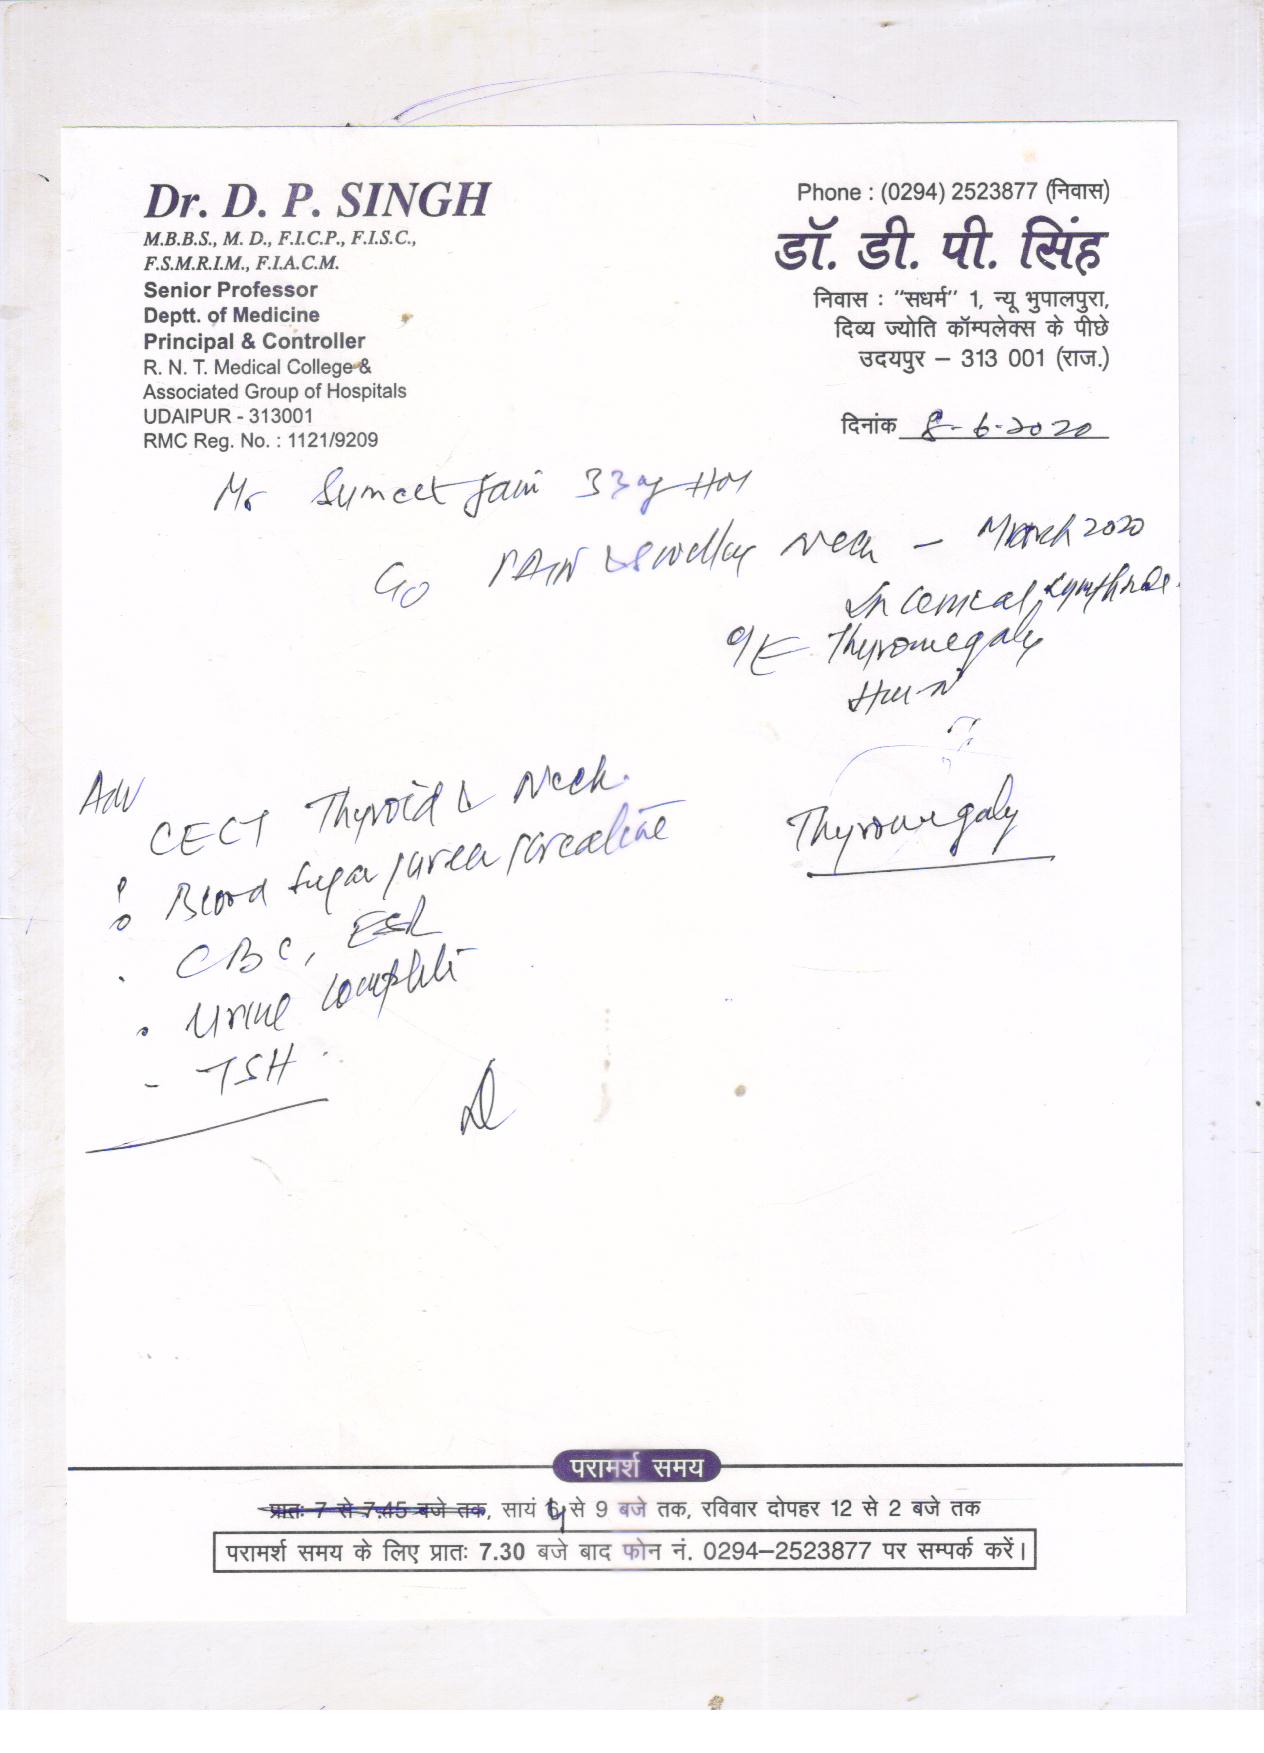 Dr. D. P. SINGH
M.B.B.S., M. D., F.I.C.P., F.I.S.C.,
F.S.M.R.I.M., F.I.A.C.M.
Senior Professor
Deptt. of Medicine
Principal & Controller
R. N. T. Medical College &
Associated Group of Hospitals
UDAIPUR - 313001
RMC Reg. No. : 1121/9209
Phone : (0294) 2523877 (निवास)
डॉ. डी. पी. सिंह
निवास : “सधर्म” 1, न्यू भुपालपुरा,
दिव्य ज्योति कॉम्पलेक्स के पीछे
उदयपुर – 313 001 (राज.)
दिनांक 8-6-2020
Mr Sumeet Jain 33y
C/O PAIN & Swelling Neck - March 2020
Cervical Lymphnode
O/E Thyromegaly
Thyromegaly
Adv
CECT Thyroid & Neck
Blood Sugar / urea / creatine
CBC, ESR
Urine Complete
- TSH
परामर्श समय
प्रातः 7 से 7.45 बजे तक, सायं 4 से 9 बजे तक, रविवार दोपहर 12 से 2 बजे तक
परामर्श समय के लिए प्रातः 7.30 बजे बाद फोन नं. 0294–2523877 पर सम्पर्क करें।